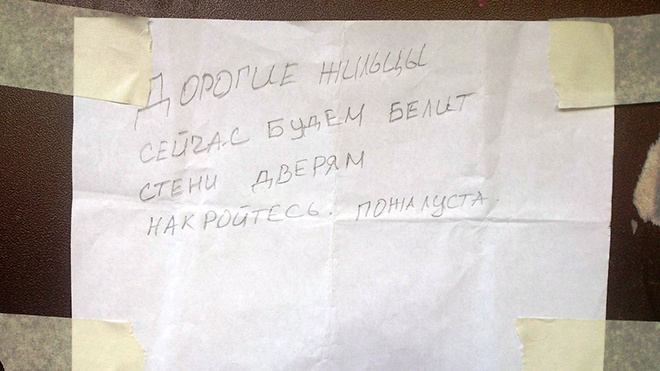 ДОРОГИЕ ЖИЛЬЦЫ
СЕЙЧАС БУДЕМ БЕЛИТ
СТЕНИ ДВЕРЯМ
НАКРОЙТЕСЬ. ПОЖАЛУСТА.